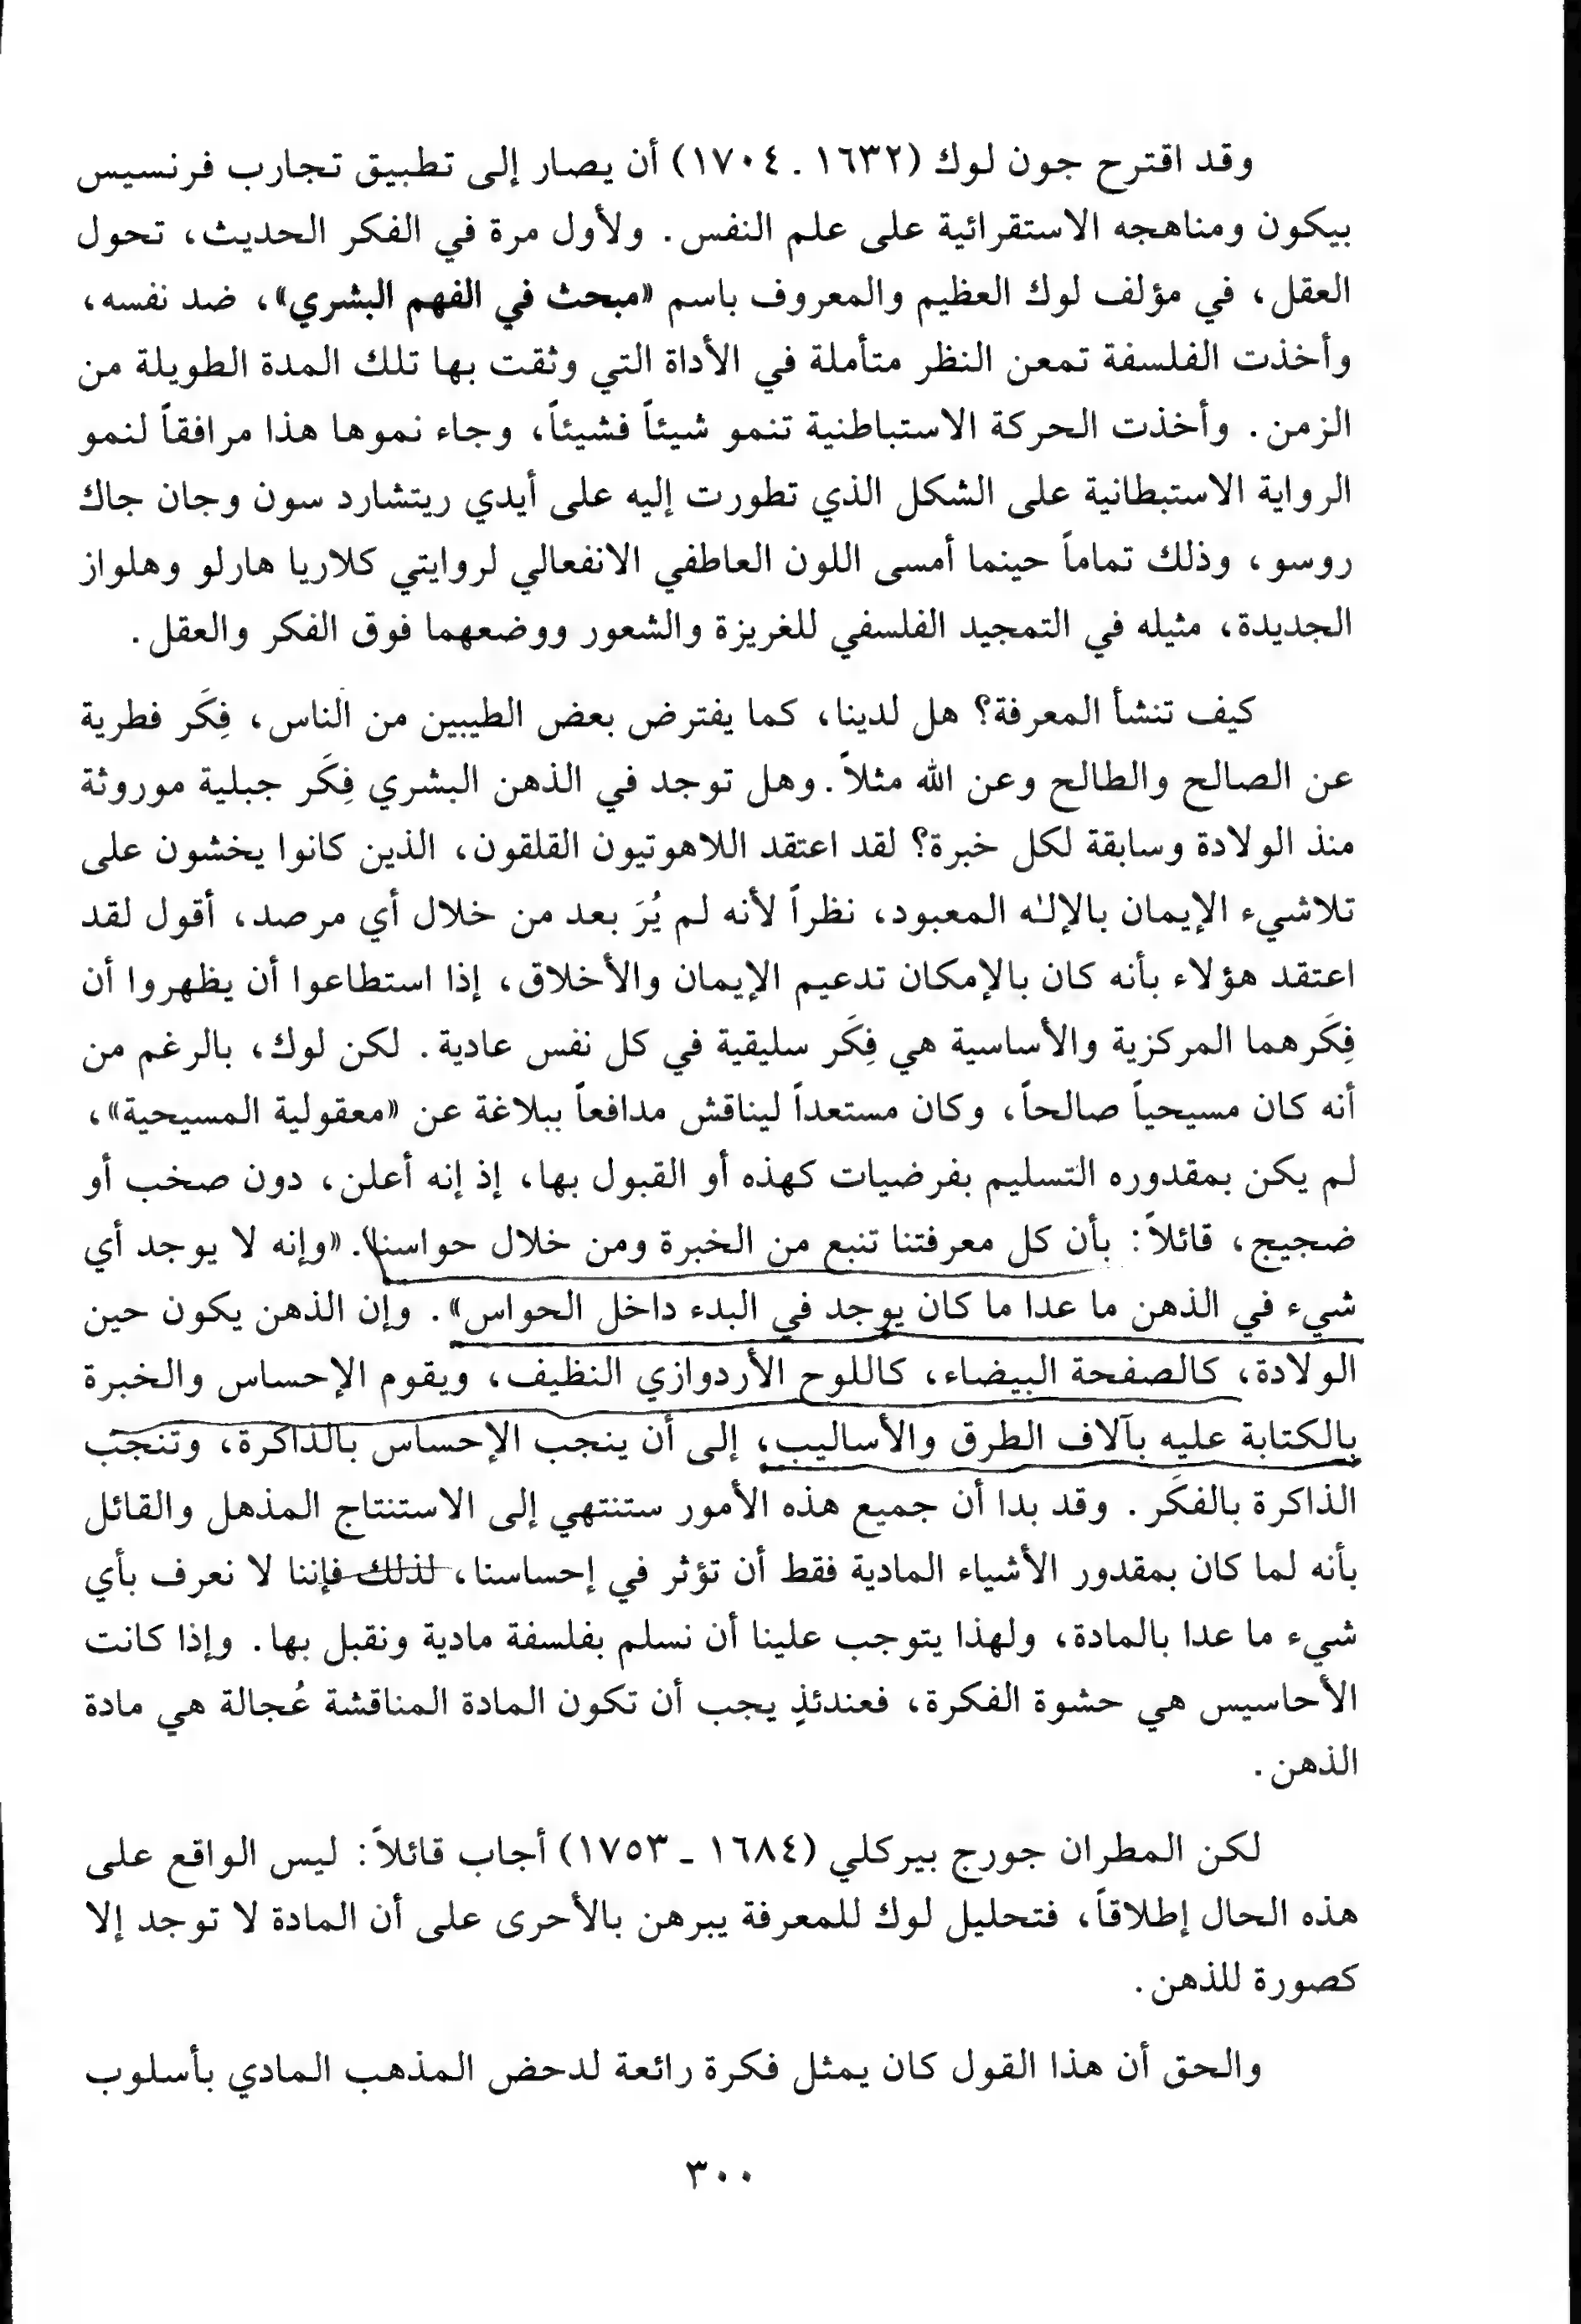 وقد اقترح جون لوك (١٦٣٢ ـ ١٧٠٤) أن يصار إلى تطبيق تجارب فرنسيس
بيكون ومناهجه الاستقرائية على علم النفس. ولأول مرة في الفكر الحديث، تحول
العقل، في مؤلف لوك العظيم والمعروف باسم «مبحث في الفهم البشري»، ضد نفسه،
وأخذت الفلسفة تمعن النظر متأملة في الأداة التي وثقت بها تلك المدة الطويلة من
الزمن. وأخذت الحركة الاستباطنية تنمو شيئاً فشيئاً، وجاء نموها هذا مرافقاً لنمو
الرواية الاستبطانية على الشكل الذي تطورت إليه على أيدي ريتشارد سون وجان جاك
روسو، وذلك تماماً حينما أمسى اللون العاطفي الانفعالي لروايتي كلاريا هارلو وهلواز
الجديدة، مثيله في التمجيد الفلسفي للغريزة والشعور ووضعهما فوق الفكر والعقل.
كيف تنشأ المعرفة؟ هل لدينا، كما يفترض بعض الطيبين من الناس، فِكَر فطرية
عن الصالح والطالح وعن الله مثلاً. وهل توجد في الذهن البشري فِكَر جبلية موروثة
منذ الولادة وسابقة لكل خبرة؟ لقد اعتقد اللاهوتيون القلقون، الذين كانوا يخشون على
تلاشيء الإيمان بالإلٰه المعبود، نظراً لأنه لم يُرَ بعد من خلال أي مرصد، أقول لقد
اعتقد هؤلاء بأنه كان بالإمكان تدعيم الإيمان والأخلاق، إذا استطاعوا أن يظهروا أن
فِكَرهما المركزية والأساسية هي فِكَر سليقية في كل نفس عادية. لكن لوك، بالرغم من
أنه كان مسيحياً صالحاً، وكان مستعداً ليناقش مدافعاً ببلاغة عن «معقولية المسيحية»،
لم يكن بمقدوره التسليم بفرضيات كهذه أو القبول بها، إذ إنه أعلن، دون صخب أو
ضجيج، قائلاً: بأن كل معرفتنا تنبع من الخبرة ومن خلال حواسنا). «وإنه لا يوجد أي
شيء في الذهن ما عدا ما كان يوجد في البدء داخل الحواس». وإن الذهن يكون حين
الولادة، كالصفحة البيضاء، كاللوح الأردوازي النظيف، ويقوم الإحساس والخبرة
بالكتابة عليه بآلاف الطرق والأساليب، إلى أن ينجب الإحساس بالذاكرة، وتنجب
الذاكرة بالفكَر. وقد بدا أن جميع هذه الأمور ستنتهي إلى الاستنتاج المذهل والقائل
بأنه لما كان بمقدور الأشياء المادية فقط أن تؤثر في إحساسنا، لذلك فإننا لا نعرف بأي
شيء ما عدا بالمادة، ولهذا يتوجب علينا أن نسلم بفلسفة مادية ونقبل بها. وإذا كانت
الأحاسيس هي حشوة الفكرة، فعندئذٍ يجب أن تكون المادة المناقشة عُجالة هي مادة
الذهن.
لكن المطران جورج بيركلي (١٦٨٤ ـ ١٧٥٣) أجاب قائلاً: ليس الواقع على
هذه الحال إطلاقاً، فتحليل لوك للمعرفة يبرهن بالأحرى على أن المادة لا توجد إلا
كصورة للذهن.
والحق أن هذا القول كان يمثل فكرة رائعة لدحض المذهب المادي بأسلوب
٣٠٠